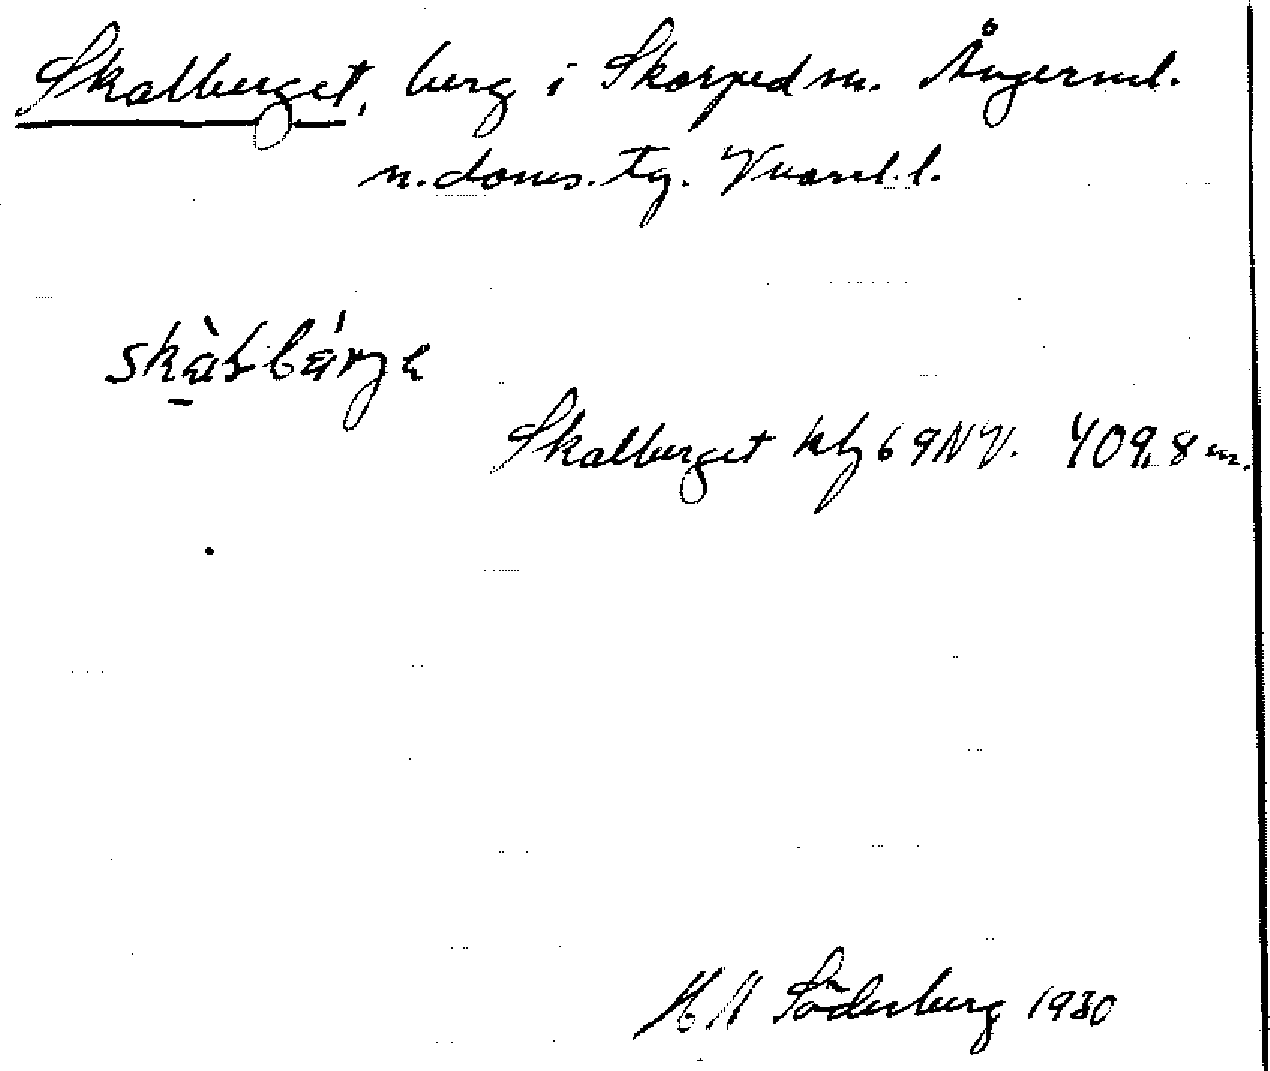 Skalberget, berg i Skorped sn. Ångerml.
n. doms. tg. Vnorrl. l.
skàlbárje
Skalberget kbl 69 NV. 409,8 m.
H N Söderberg 1930